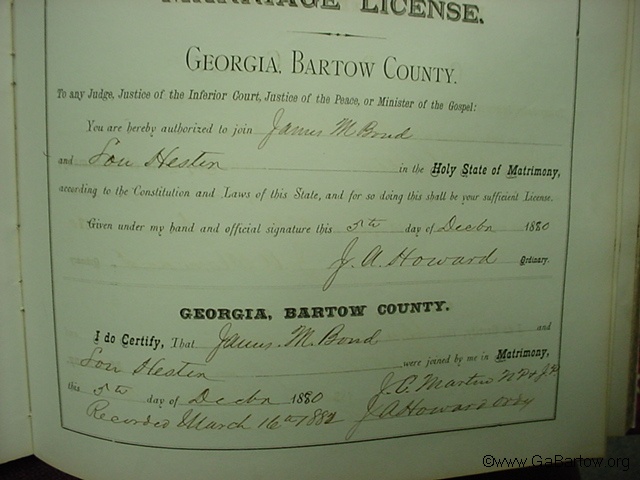 MARRIAGE LICENSE.
GEORGIA, BARTOW COUNTY.
To any Judge, Justice of the Inferior Court, Justice of the Peace, or Minister of the Gospel:
You are hereby authorized to join James M Bond
and Lou Hester in the Holy State of Matrimony,
according to the Constitution and Laws of this State, and for so doing this shall be your sufficient License.
Given under my hand and official signature this 5th day of Decbr 1880
J. A. Howard Ordinary.
GEORGIA, BARTOW COUNTY.
I do Certify, That James. M. Bond and
Lou Hester were joined by me in Matrimony,
this 5th day of Decbr 1880 J. C. Martin NP & J.P.
Recorded March 16th 1882 J A Howard Ordy
©www.GaBartow.org